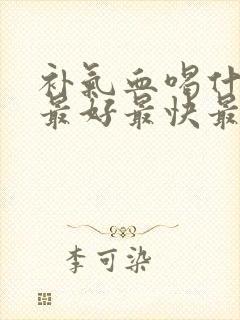 补氣血喝什
最好最快最
李可染